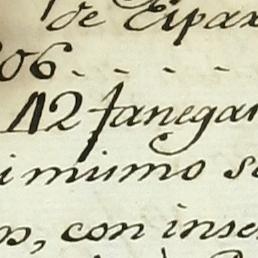 de Eipax
06. . . . .
12 fanegas
imismo se
os, con inser